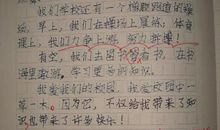 我们学校还有一个橡胶跑道的操
场。早上，我们在操场上晨练，体育
课上，我们力争上游，努力拼搏！
有空，我们去图书馆看书，在书
海里遨游，学习里面的知识。
我爱我们的校园，我爱校园中一
草一木。因为它，不仅给我带来了知
识也带来了许多快乐！